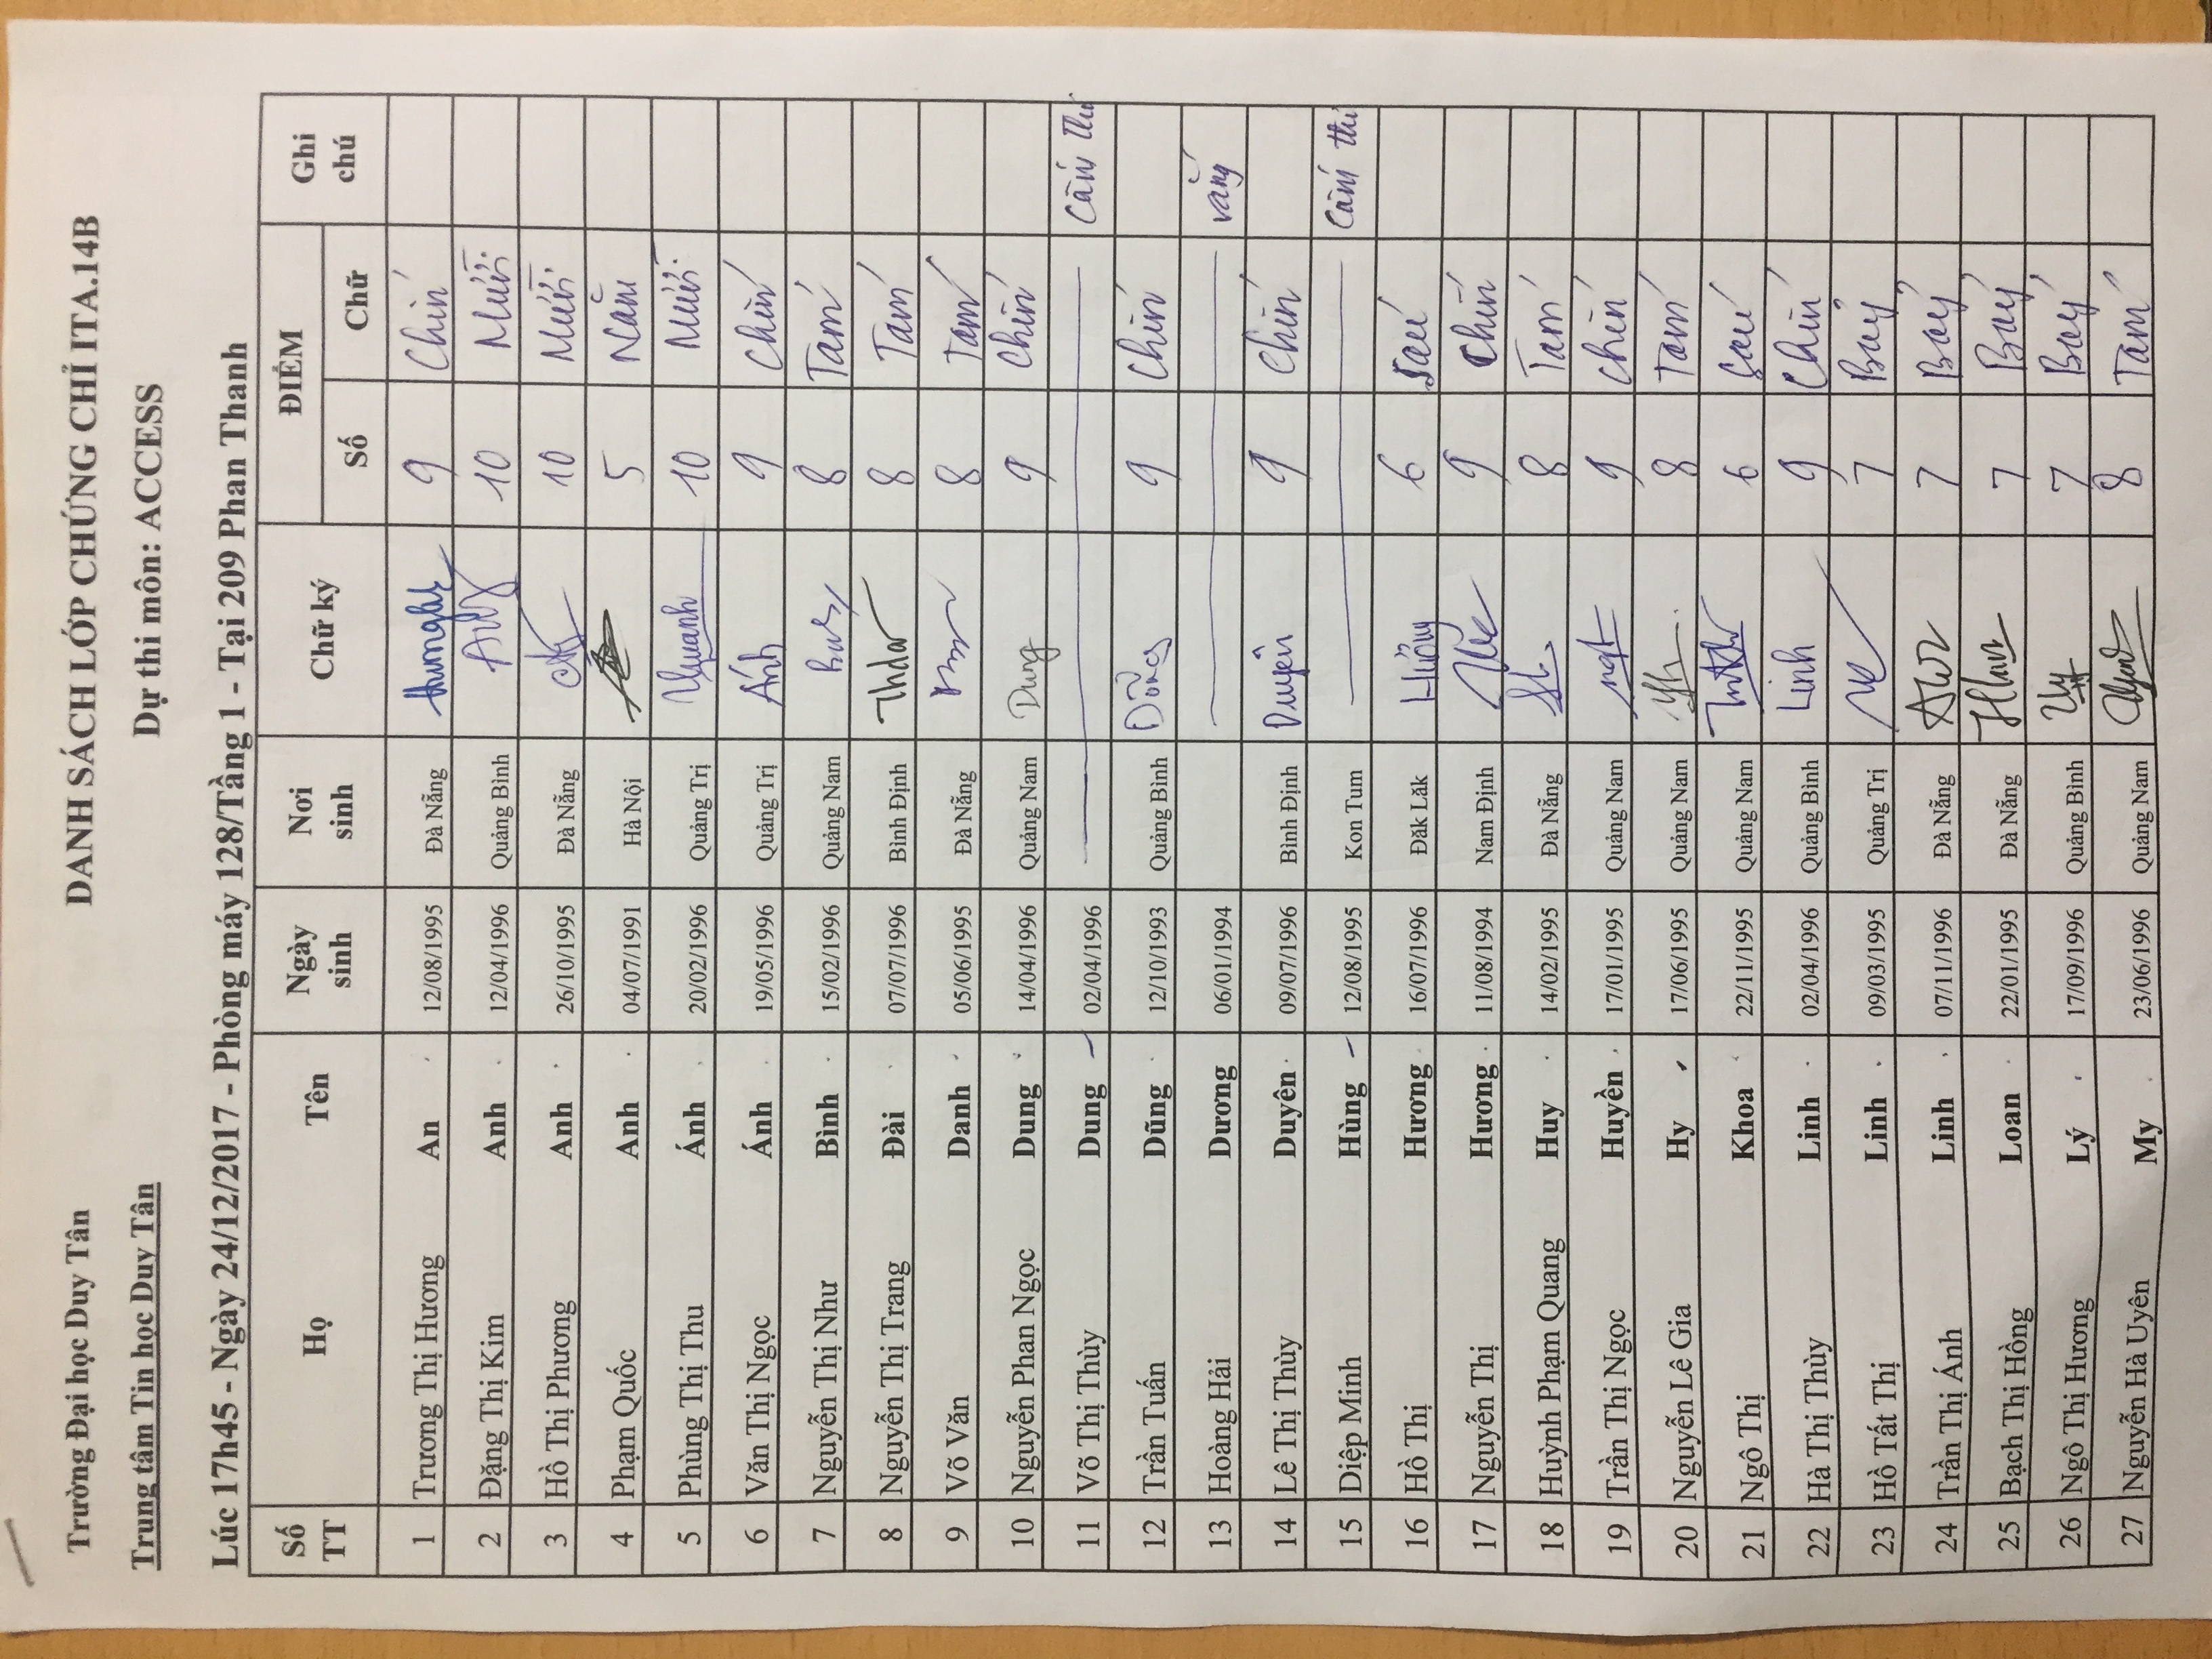 Trường Đại học Duy Tân DANH SÁCH LỚP CHỨNG CHỈ ITA.14B
Trung tâm Tin học Duy Tân Dự thi môn: ACCESS
Lúc 17h45 - Ngày 24/12/2017 - Phòng máy 128/Tầng 1 - Tại 209 Phan Thanh
Số TT Họ Tên Ngày sinh Nơi sinh Chữ ký ĐIỂM Ghi chú
Số Chữ
1 Trương Thị Hương An 12/08/1995 Đà Nẵng 9 Chín
2 Đặng Thị Kim Anh 12/04/1996 Quảng Bình 10 Mười
3 Hồ Thị Phương Anh 26/10/1995 Đà Nẵng 10 Mười
4 Phạm Quốc Anh 04/07/1991 Hà Nội 5 Năm
5 Phùng Thị Thu Ánh 20/02/1996 Quảng Trị 10 Mười
6 Văn Thị Ngọc Ánh 19/05/1996 Quảng Trị Ánh 9 Chín
7 Nguyễn Thị Như Bình 15/02/1996 Quảng Nam 8 Tám
8 Nguyễn Thị Trang Đài 07/07/1996 Bình Định 8 Tám
9 Võ Văn Danh 05/06/1995 Đà Nẵng 8 Tám
10 Nguyễn Phan Ngọc Dung 14/04/1996 Quảng Nam Dung 9 Chín
11 Võ Thị Thùy Dung 02/04/1996 Cấm thi
12 Trần Tuấn Dũng 12/10/1993 Quảng Bình Dũng 9 Chín
13 Hoàng Hải Dương 06/01/1994 Vắng
14 Lê Thị Thùy Duyên 09/07/1996 Bình Định Duyên 9 Chín
15 Diệp Minh Hùng 12/08/1995 Kon Tum Cấm thi
16 Hồ Thị Hương 16/07/1996 Đăk Lăk Hương 6 Sáu
17 Nguyễn Thị Hương 11/08/1994 Nam Định 9 Chín
18 Huỳnh Phạm Quang Huy 14/02/1995 Đà Nẵng 8 Tám
19 Trần Thị Ngọc Huyền 17/01/1995 Quảng Nam 9 Chín
20 Nguyễn Lê Gia Hy 17/06/1995 Quảng Nam 8 Tám
21 Ngô Thị Khoa 22/11/1995 Quảng Nam 6 Sáu
22 Hà Thị Thùy Linh 02/04/1996 Quảng Bình Linh 9 Chín
23 Hồ Tất Thị Linh 09/03/1995 Quảng Trị 7 Bảy
24 Trần Thị Ánh Linh 07/11/1996 Đà Nẵng 7 Bảy
25 Bạch Thị Hồng Loan 22/01/1995 Đà Nẵng 7 Bảy
26 Ngô Thị Hương Lý 17/09/1996 Quảng Bình 7 Bảy
27 Nguyễn Hà Uyên My 23/06/1996 Quảng Nam 8 Tám